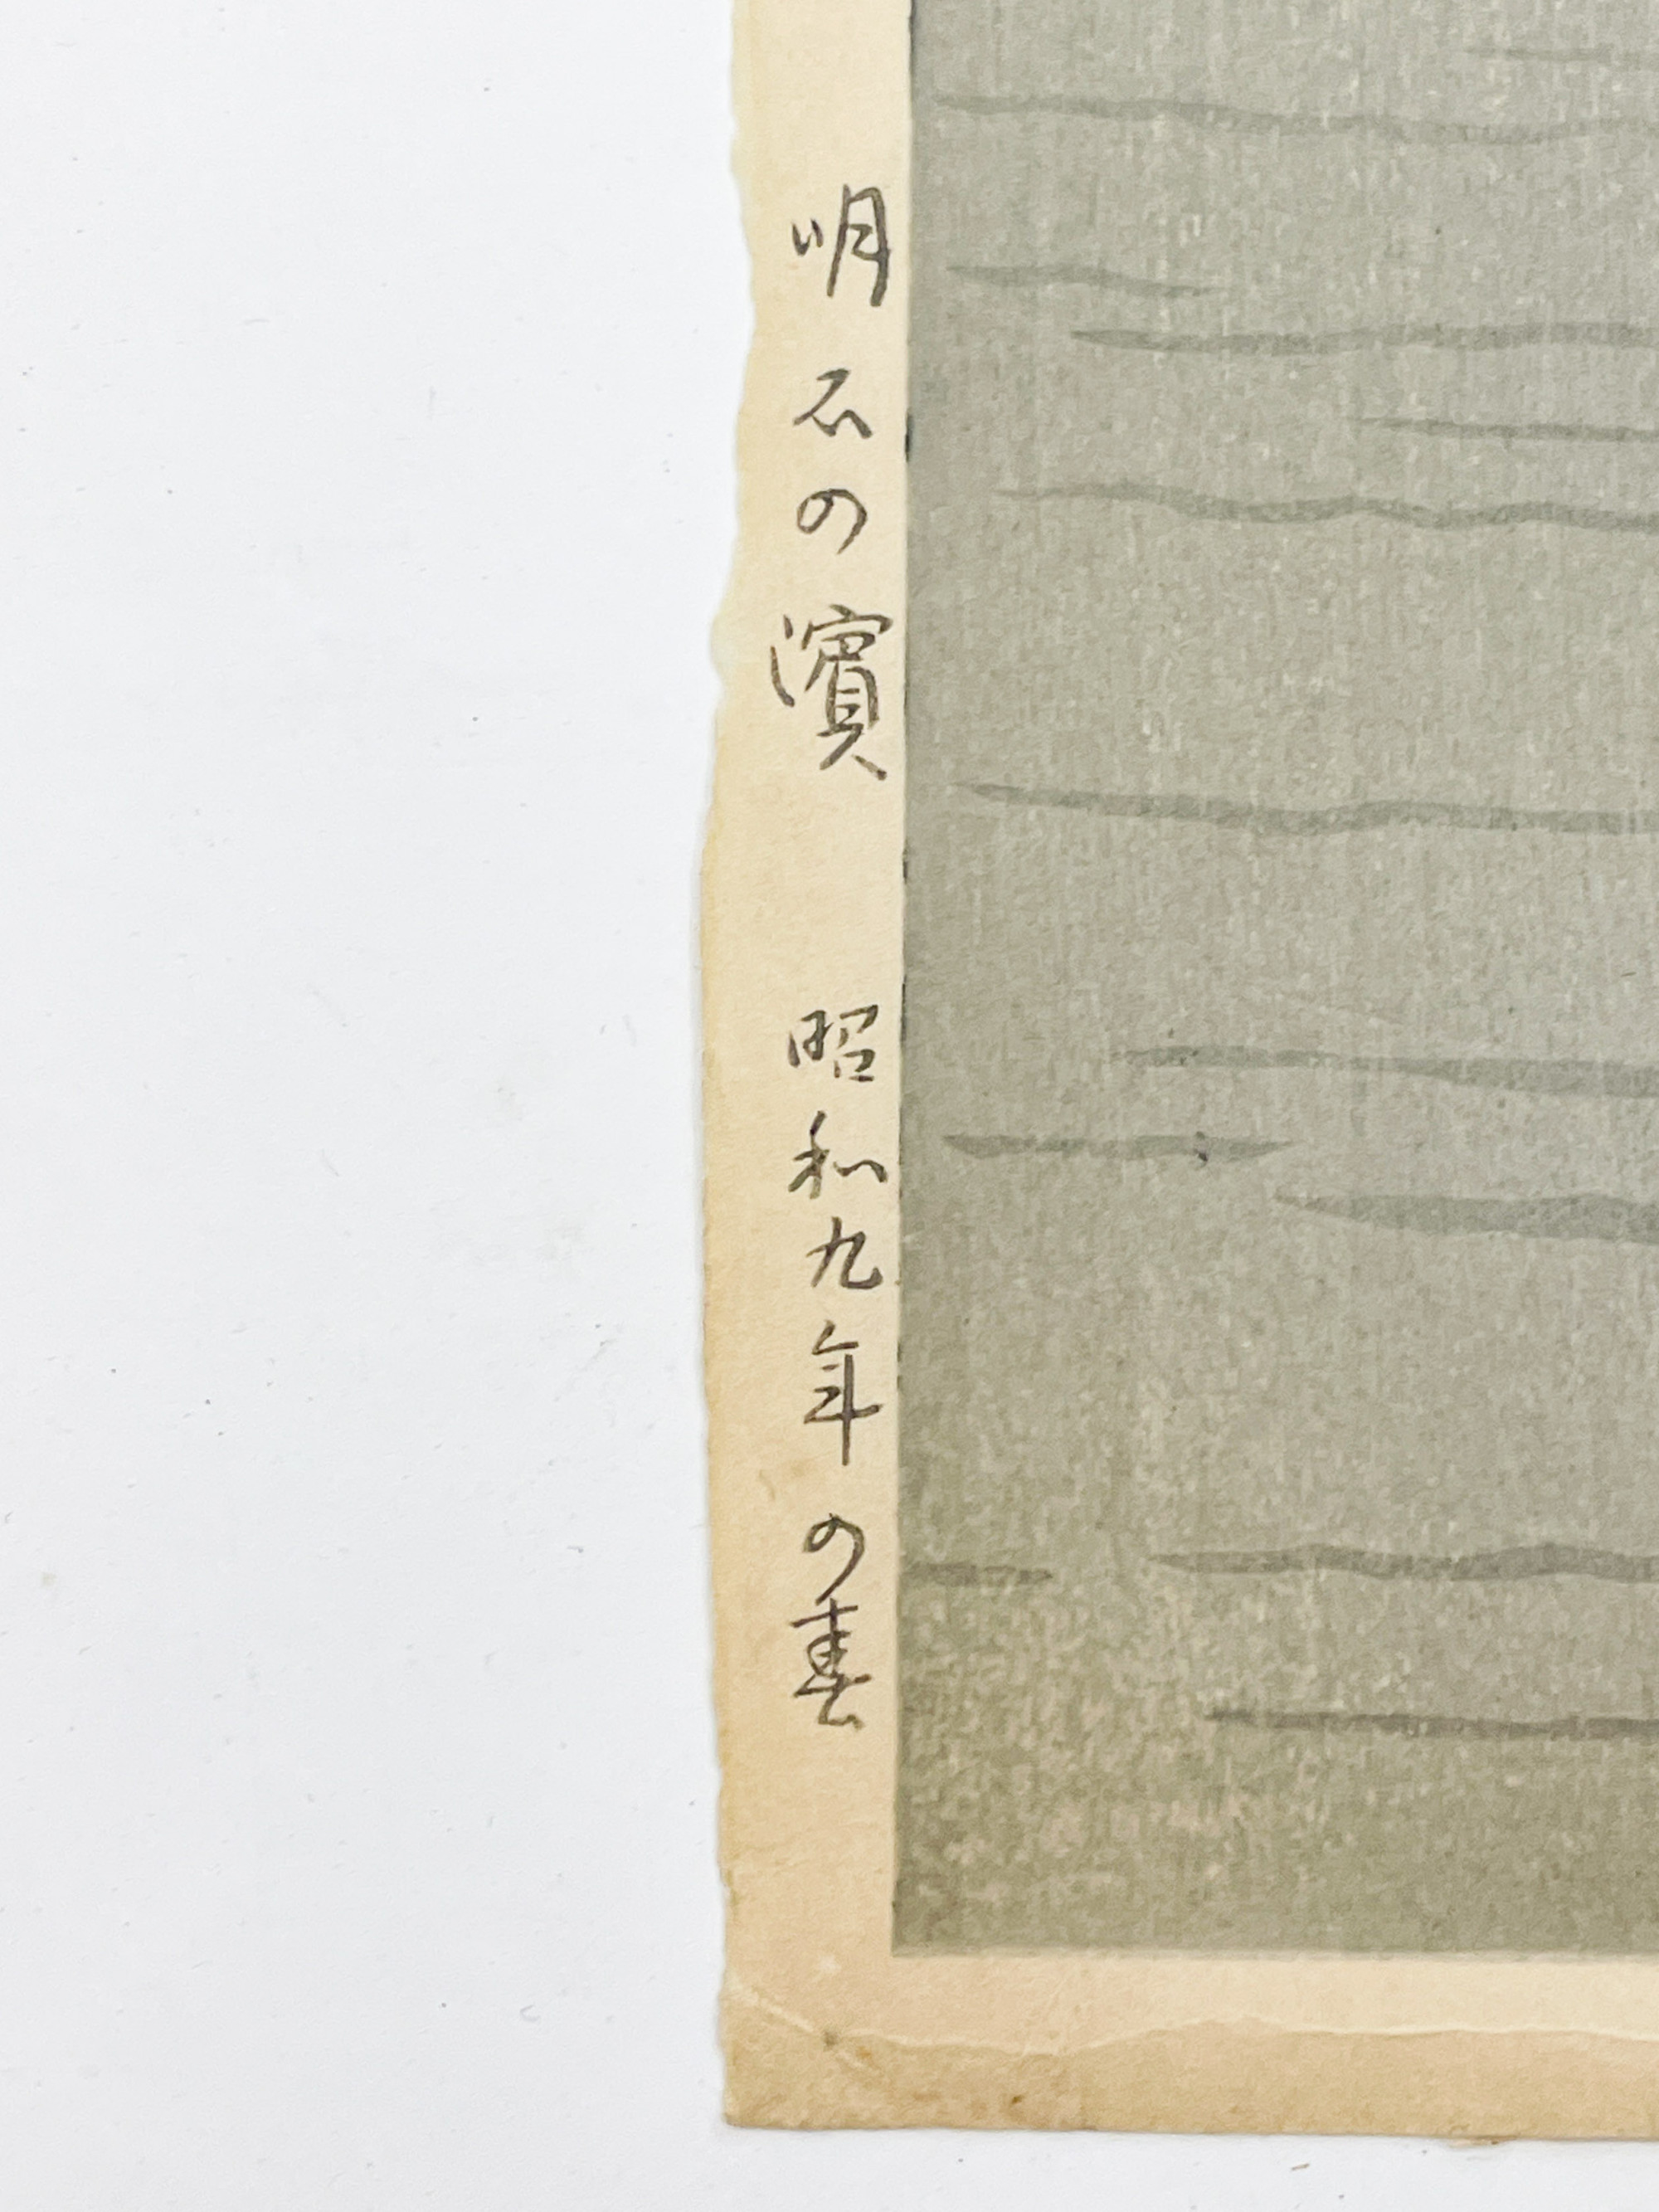 明石の濱　昭和九年の春